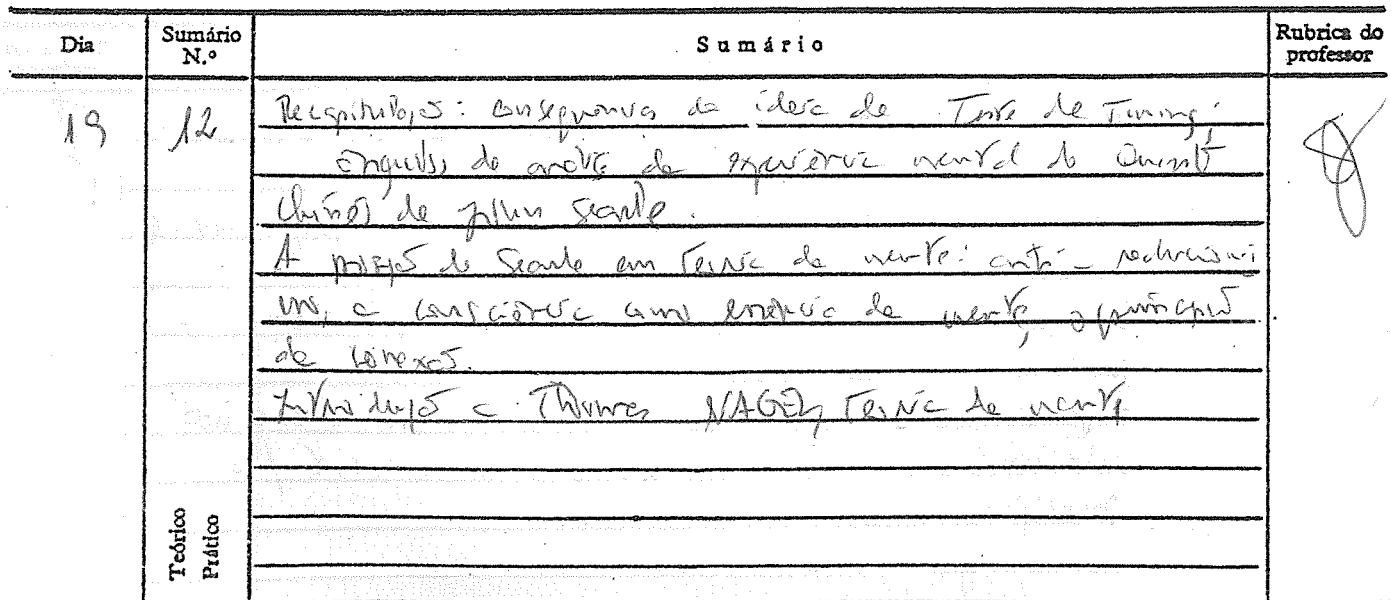 Dia Sumário N.º Sumário Rubrica do professor
19 12 Recapitulação: consequências da ideia de Teste de Turing;
ângulos de análise da experiência mental do Quarto
Chinês de John Searle.
A posição de Searle em teoria da mente: anti-reducionis
mo, a consciência como essência da mente, o princípio
de conexão.
Introdução a Thomas NAGEL, teoria da mente
Teórico
Prático